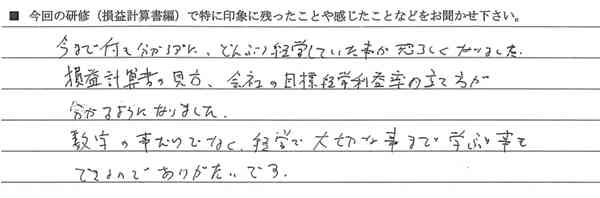 ■ 今回の研修（損益計算書編）で特に印象に残ったことや感じたことなどをお聞かせ下さい。
今まで何も分からずに、どんぶり経営していた事が恐ろしくなりました。
損益計算書の見方、会社の目標経常利益率の立て方が
分かるようになりました。
数字の事だけでなく、経営で大切な事まで学ぶ事も
できるのでありがたいです。